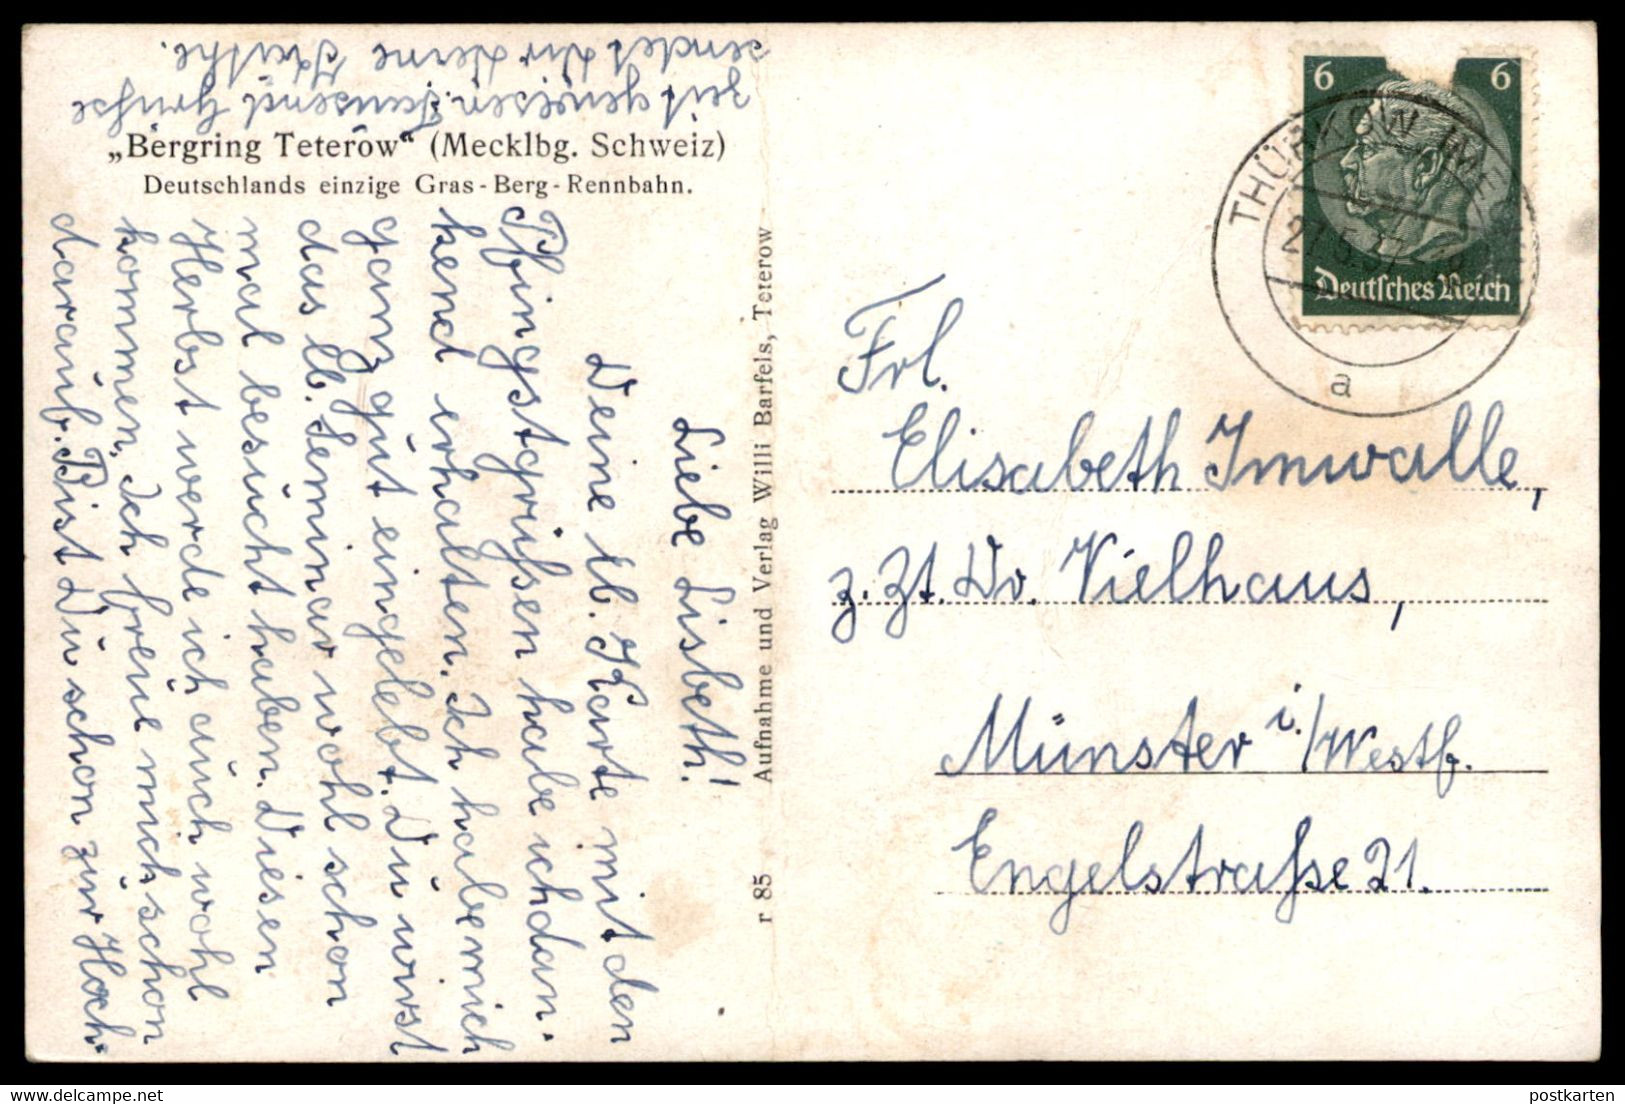 „Bergring Teterow“ (Mecklbg. Schweiz)
Deutschlands einzige Gras-Berg-Rennbahn.
Liebe Lisbeth!
Deine lb. Karte mit den
Pfingstgrüßen habe ich dan-
kend erhalten. Ich habe mich
ganz gut eingelebt. Du wirst
das lb. Seminar wohl schon
mal besucht haben. Diesen
Herbst werde ich auch wohl
kommen, Ich freue mich schon
darauf. Bist Du schon zur Hoch-
zeit gewesen. Tausend Grüße
sendet Dir Deine Käthe.
r 85 Aufnahme und Verlag Willi Barfels, Teterow
6 6
Deutsches Reich
THÜRKOW
27.5.37
a
Frl.
Elisabeth Imwalle,
z. Zt. Dr. Vielhaus,
Münster i./Westf.
Engelstraße 21.
postkarten